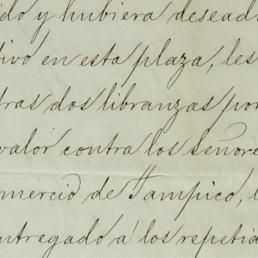 do y hubiera desead
ivo en esta plaza, les
tras dos libranzas por
valor contra los señore
mercio de Tampico, l
ntregado a los repetid